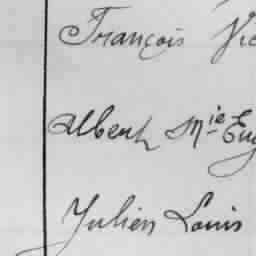 François Vic
Albert Mie Eug
Julien Louis